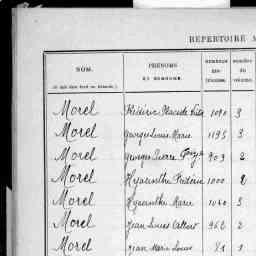 RÉPERTOIRE A
NOM. PRÉNOMS ET SURNOMS. NUMÉROS MA-TRICULES. NUMÉROS DU VOLUME.
Morel Frédéric Placide 1090 3
Morel Georges Louis Marie 1195 3
Morel Georges Pierre 903 2
Morel Hyacinthe Frédéric 1000 2
Morel Hyacinthe Marie 1040 3
Morel Jean Louis 962 2
Morel Jean Marie Louis 1